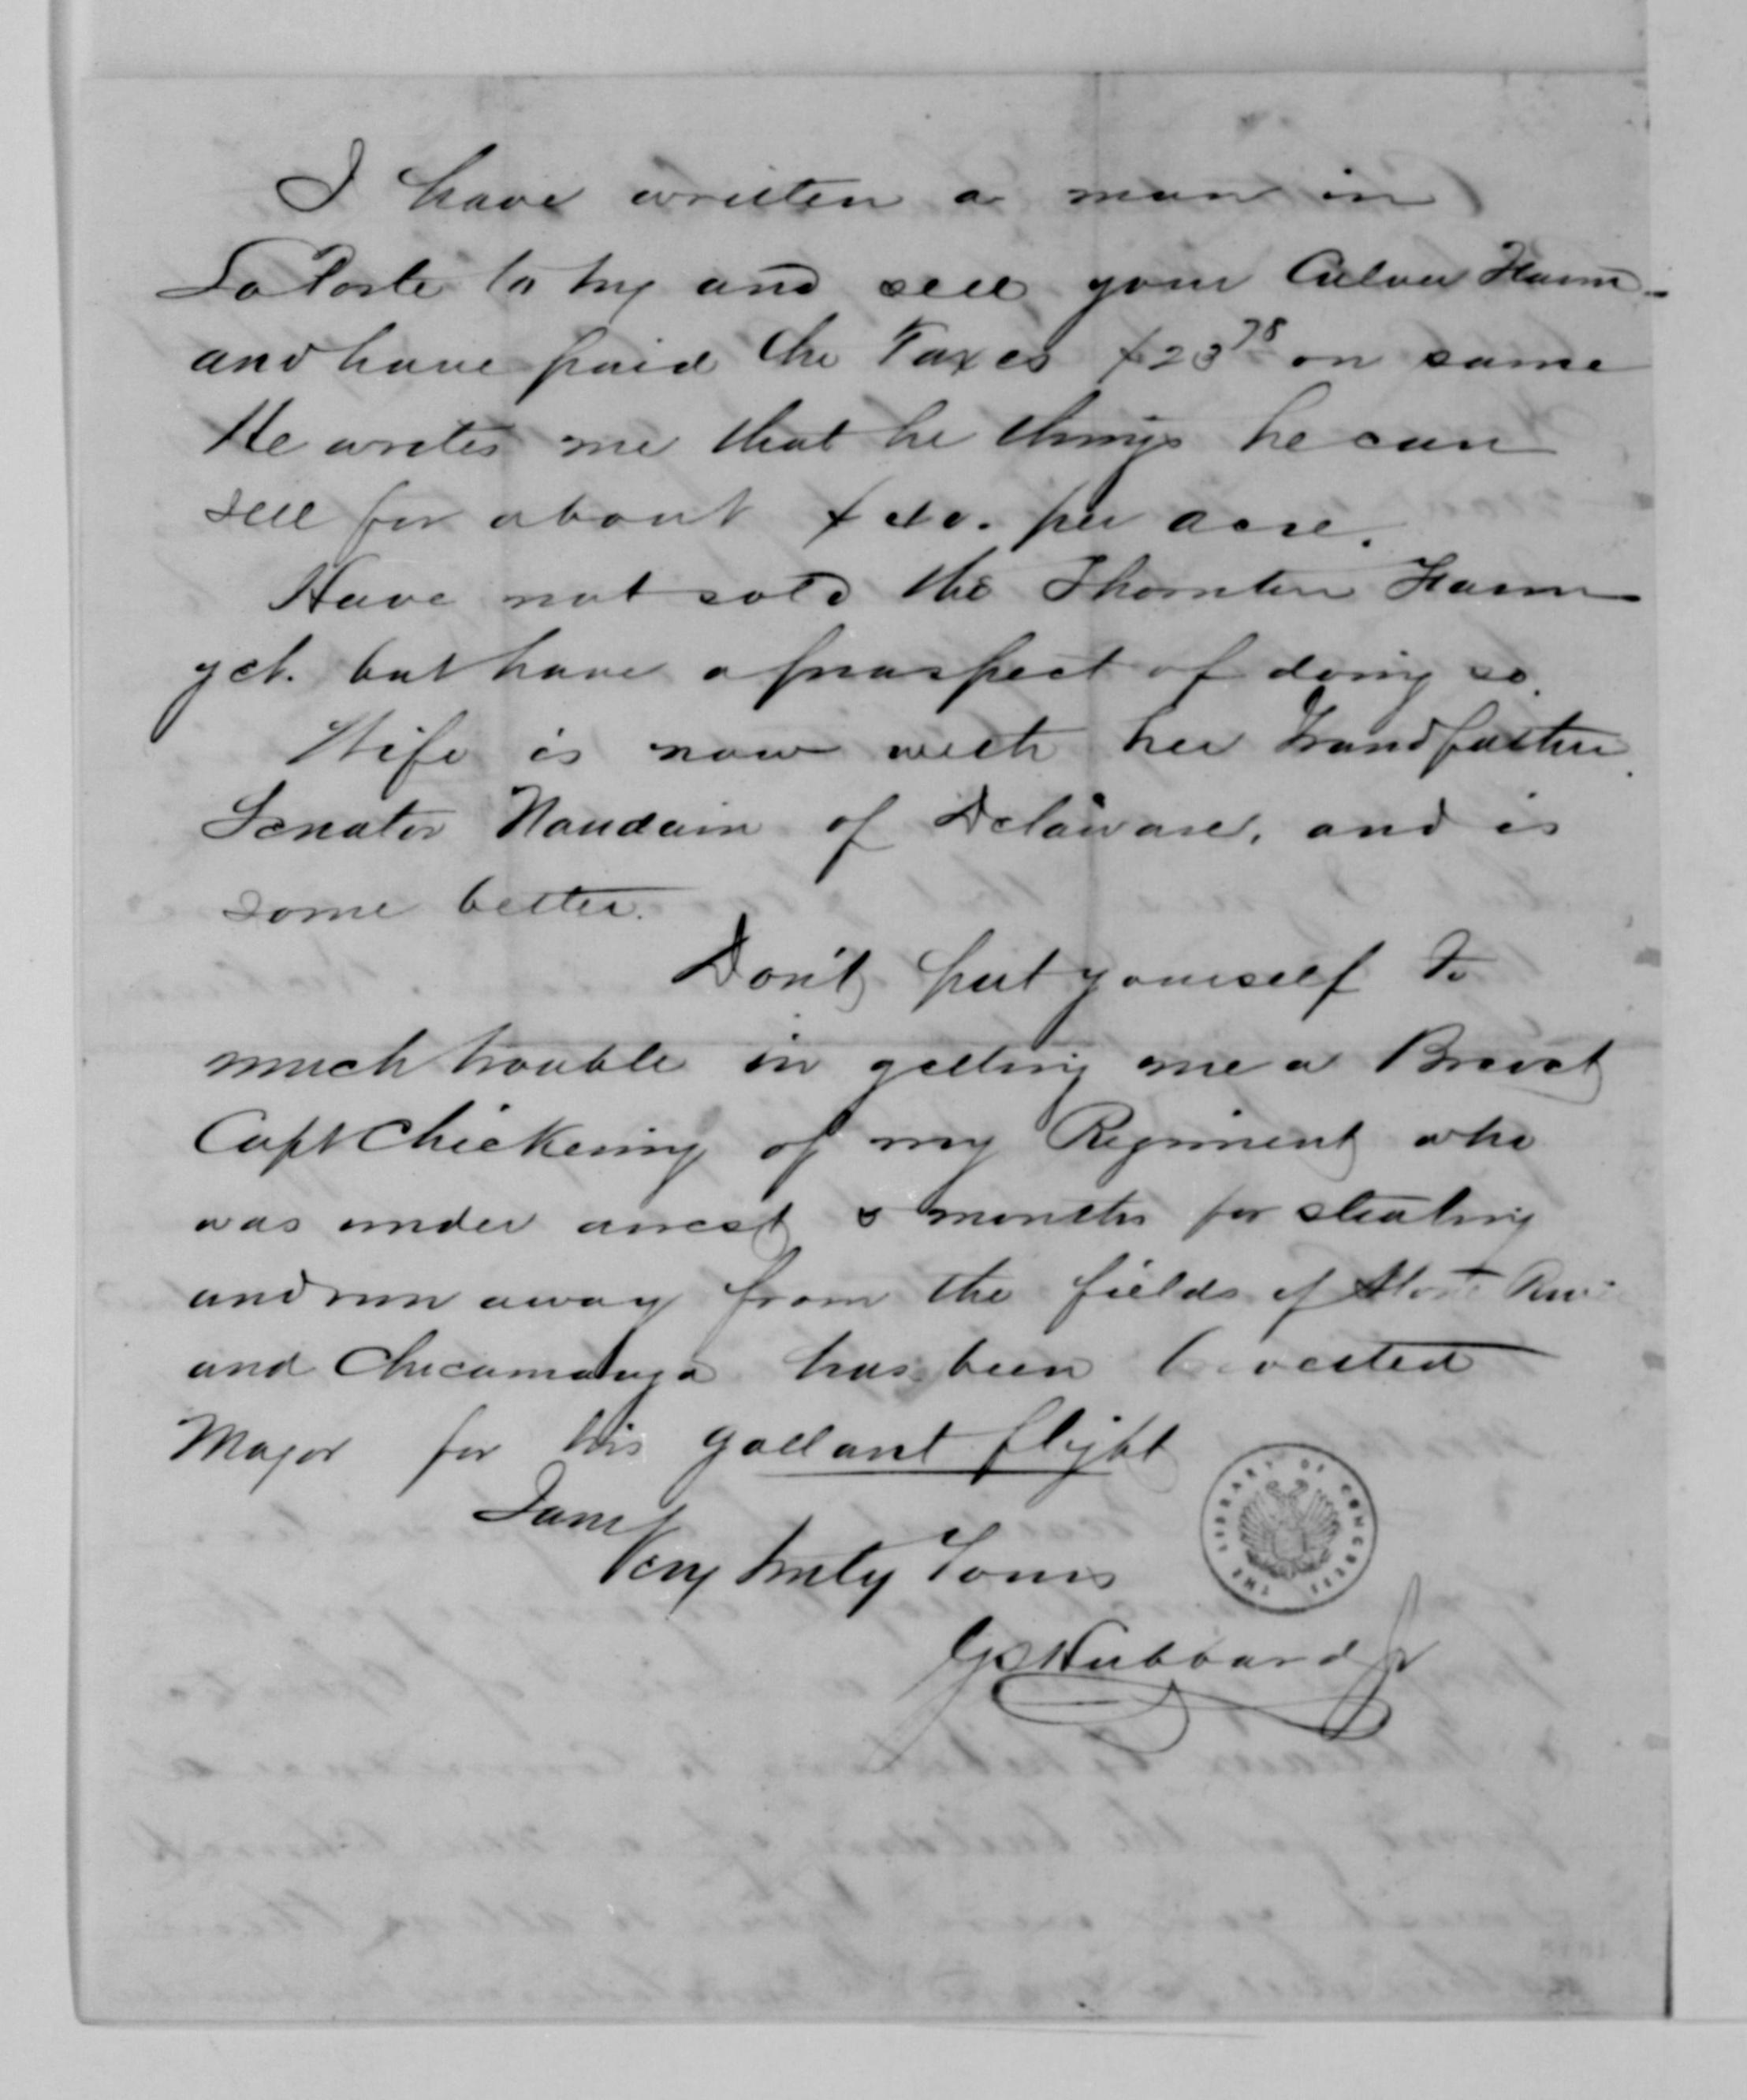 I have written a man in
LaPorte to try and sell your Culver Farm -
and have paid the Taxes $23 78 on same
He writes me that he things he can
sell for about $ per acre.
Have not sold the Thornton Farm
yet. but have a prospect of doing so.
Wife is now with her Grandfather
Senator Naudain of Delaware, and is
some better.
Don't put yourself to
much trouble in getting me a Brevet
Capt Chickering of my Regiment who
was under arrest months for stealing
and run away from the fields of Stone River
and Chicamauga has been brevetted
Major for his gallant flight
I am
Very truly Yours
GS Hubbard Jr
THE LIBRARY OF CONGRESS